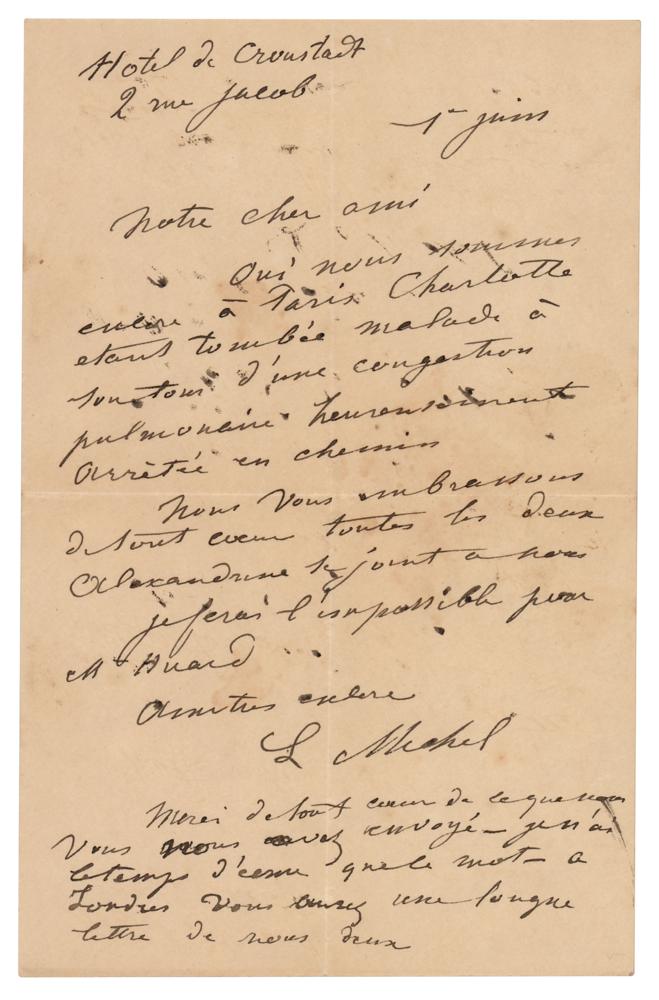 Hotel de Cronstadt
2 rue Jacob
1er juin
Notre cher ami
Oui nous sommes
encore à Paris Charlotte
etant tombée malade à
son tour d'une congestion
pulmonaire heureusement
arrêtée en chemin
Nous vous embrassons
de tout coeur toutes les deux
Alexandrine se joint a nous
je ferai l'impossible pour
Mr Huard
Amitiés encore
L Michel
Merci de tout coeur de ce que nous
vous nous avez envoyé – je n'ai
le temps d'ecrire que le mot – a
Londres vous aurez une longue
lettre de nous deux